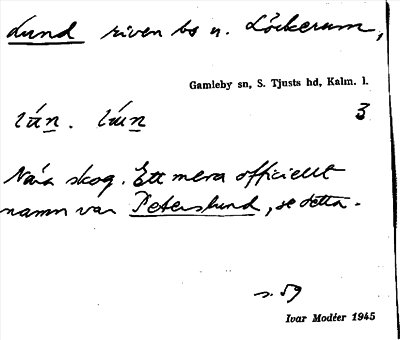 Lund riven bs u. Löckerum,
Gamleby sn, S. Tjusts hd, Kalm. l.
3
Nära skog. Ett mera officiellt
namn var Peterslund, se detta.
s. 59
Ivar Modéer 1945